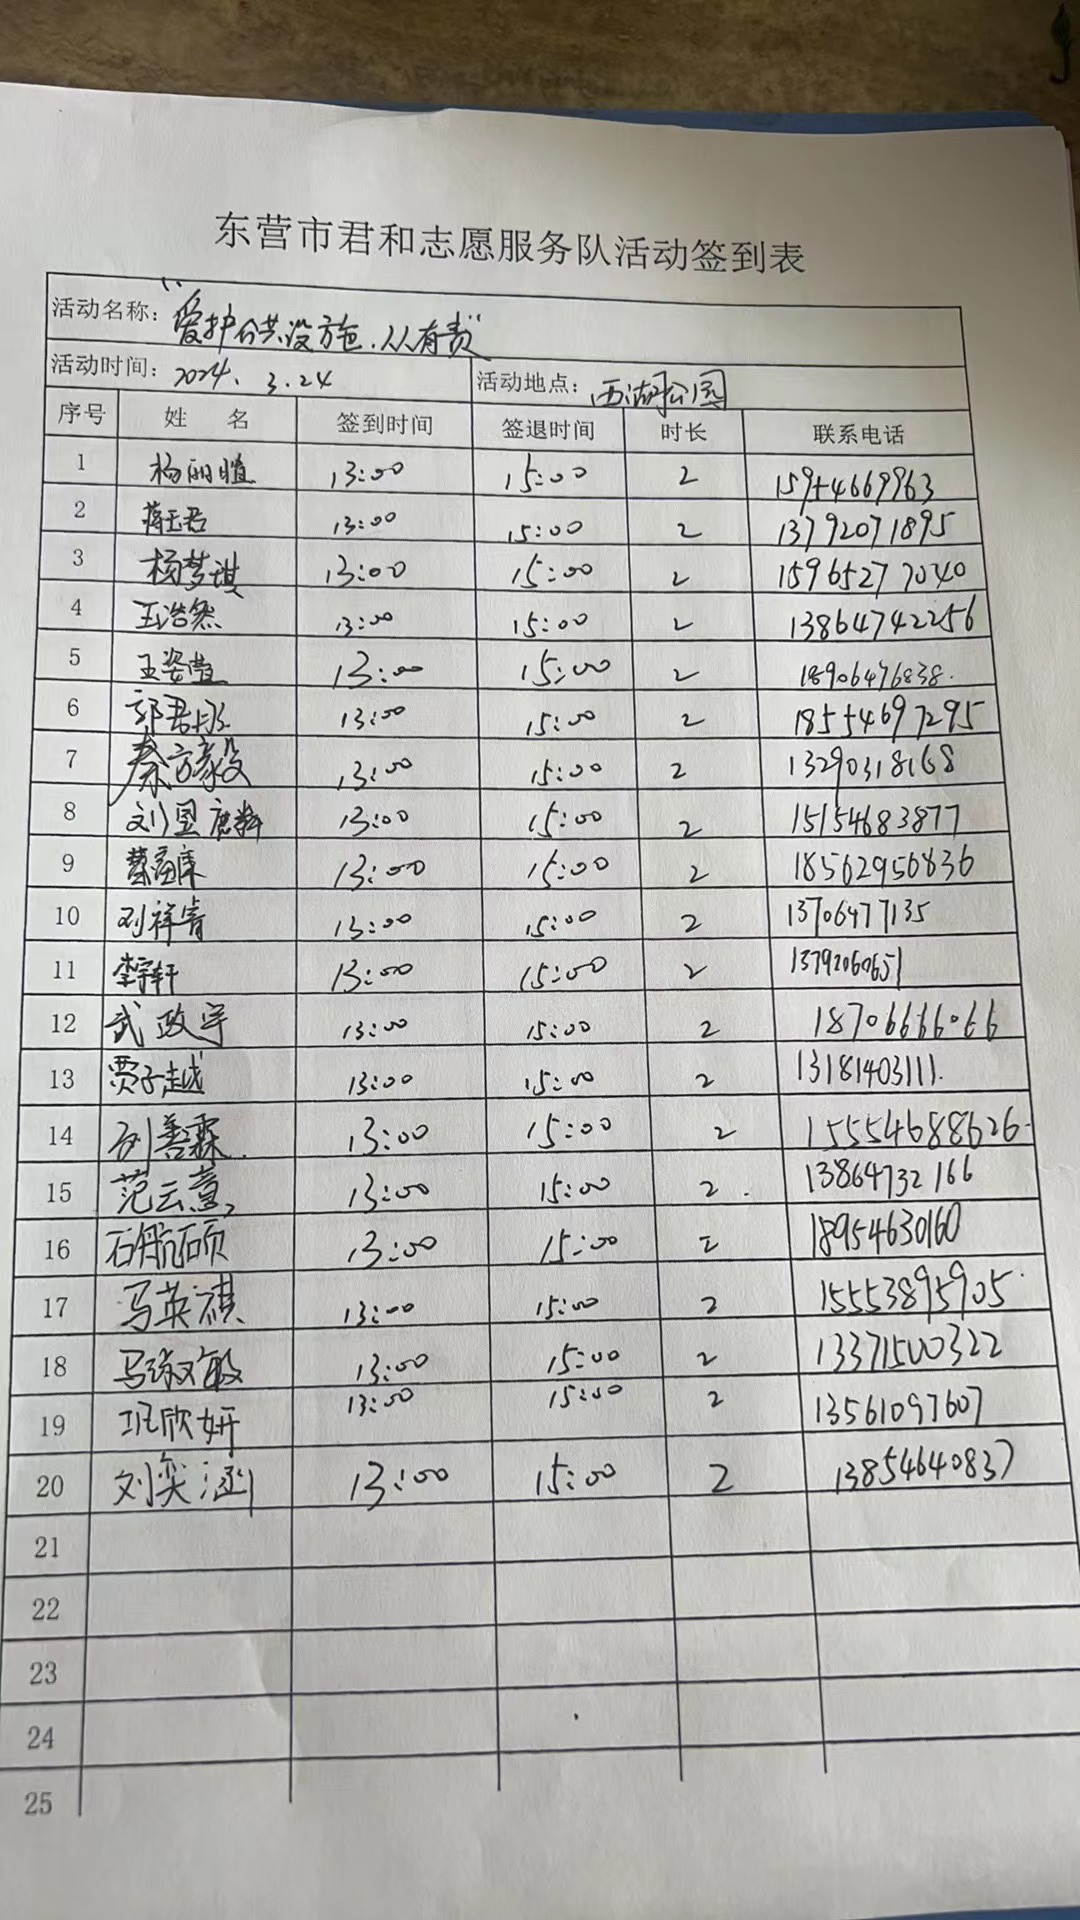 东营市君和志愿服务队活动签到表
活动名称："爱护公共设施.人人有责"
活动时间：2024.3.24 活动地点：西湖公园
序号 姓名 签到时间 签退时间 时长 联系电话
1 杨丽 13:00 15:00 2 15954669963
2 蒋玉君 13:00 15:00 2 13792071895
3 杨梦琪 13:00 15:00 2 15965277040
4 王浩然 13:00 15:00 2 13864742256
5 王姿莹 13:00 15:00 2 18906476838.
6 郭君 13:00 15:00 2 18554697295
7 秦 13:00 15:00 2 13290318168
8 刘昱 13:00 15:00 2 15154683877
9 13:00 15:00 2 18562956836
10 刘祥青 13:00 15:00 2 13706477135
11 李宇轩 13:00 15:00 2 13792060651
12 武政宇 13:00 15:00 2 18706666066
13 贾子越 13:00 15:00 2 13181403111.
14 刘善霖. 13:00 15:00 2 15554688626.
15 范云 13:00 15:00 2. 13864732166
16 石航硕 13:00 15:00 2 18954630160
17 马英祺 13:00 15:00 2 15553895905
18 马 13:00 15:00 2 13371500322
19 欣妍 13:00 15:00 2 13561097607
20 刘奕涵 13:00 15:00 2 13854640837
21
22
23
24
25